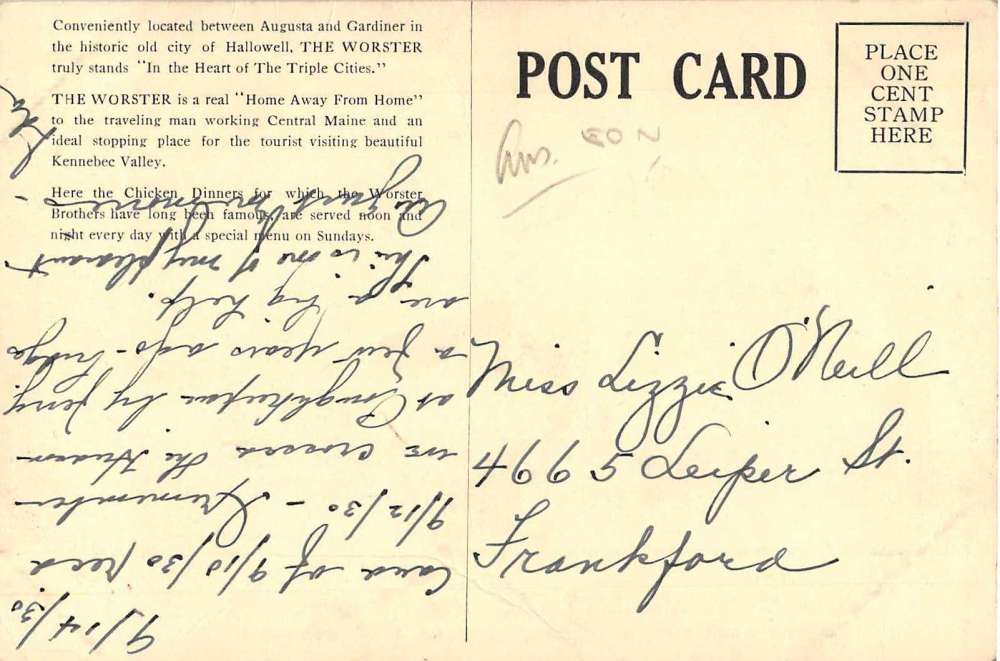 Conveniently located between Augusta and Gardiner in
the historic old city of Hallowell, THE WORSTER
truly stands "In the Heart of The Triple Cities."
THE WORSTER is a real "Home Away From Home"
to the traveling man working Central Maine and an
ideal stopping place for the tourist visiting beautiful
Kennebec Valley.
Here the Chicken Dinners for which the Worster
Brothers have long been famous, are served noon and
night every day with a special menu on Sundays.
POST CARD
PLACE
ONE
CENT
STAMP
HERE
Ans.
Miss Lizzie O'Neill
4665 Leiper St.
Frankford
9/14/30
Card of 9/10/30 recd
9/12/30 - Remember
we crossed the Hudson
at Poughkeepsie by ferry
a few years ago - Bridges
are a big help.
This is one of my pleasant
August memories -